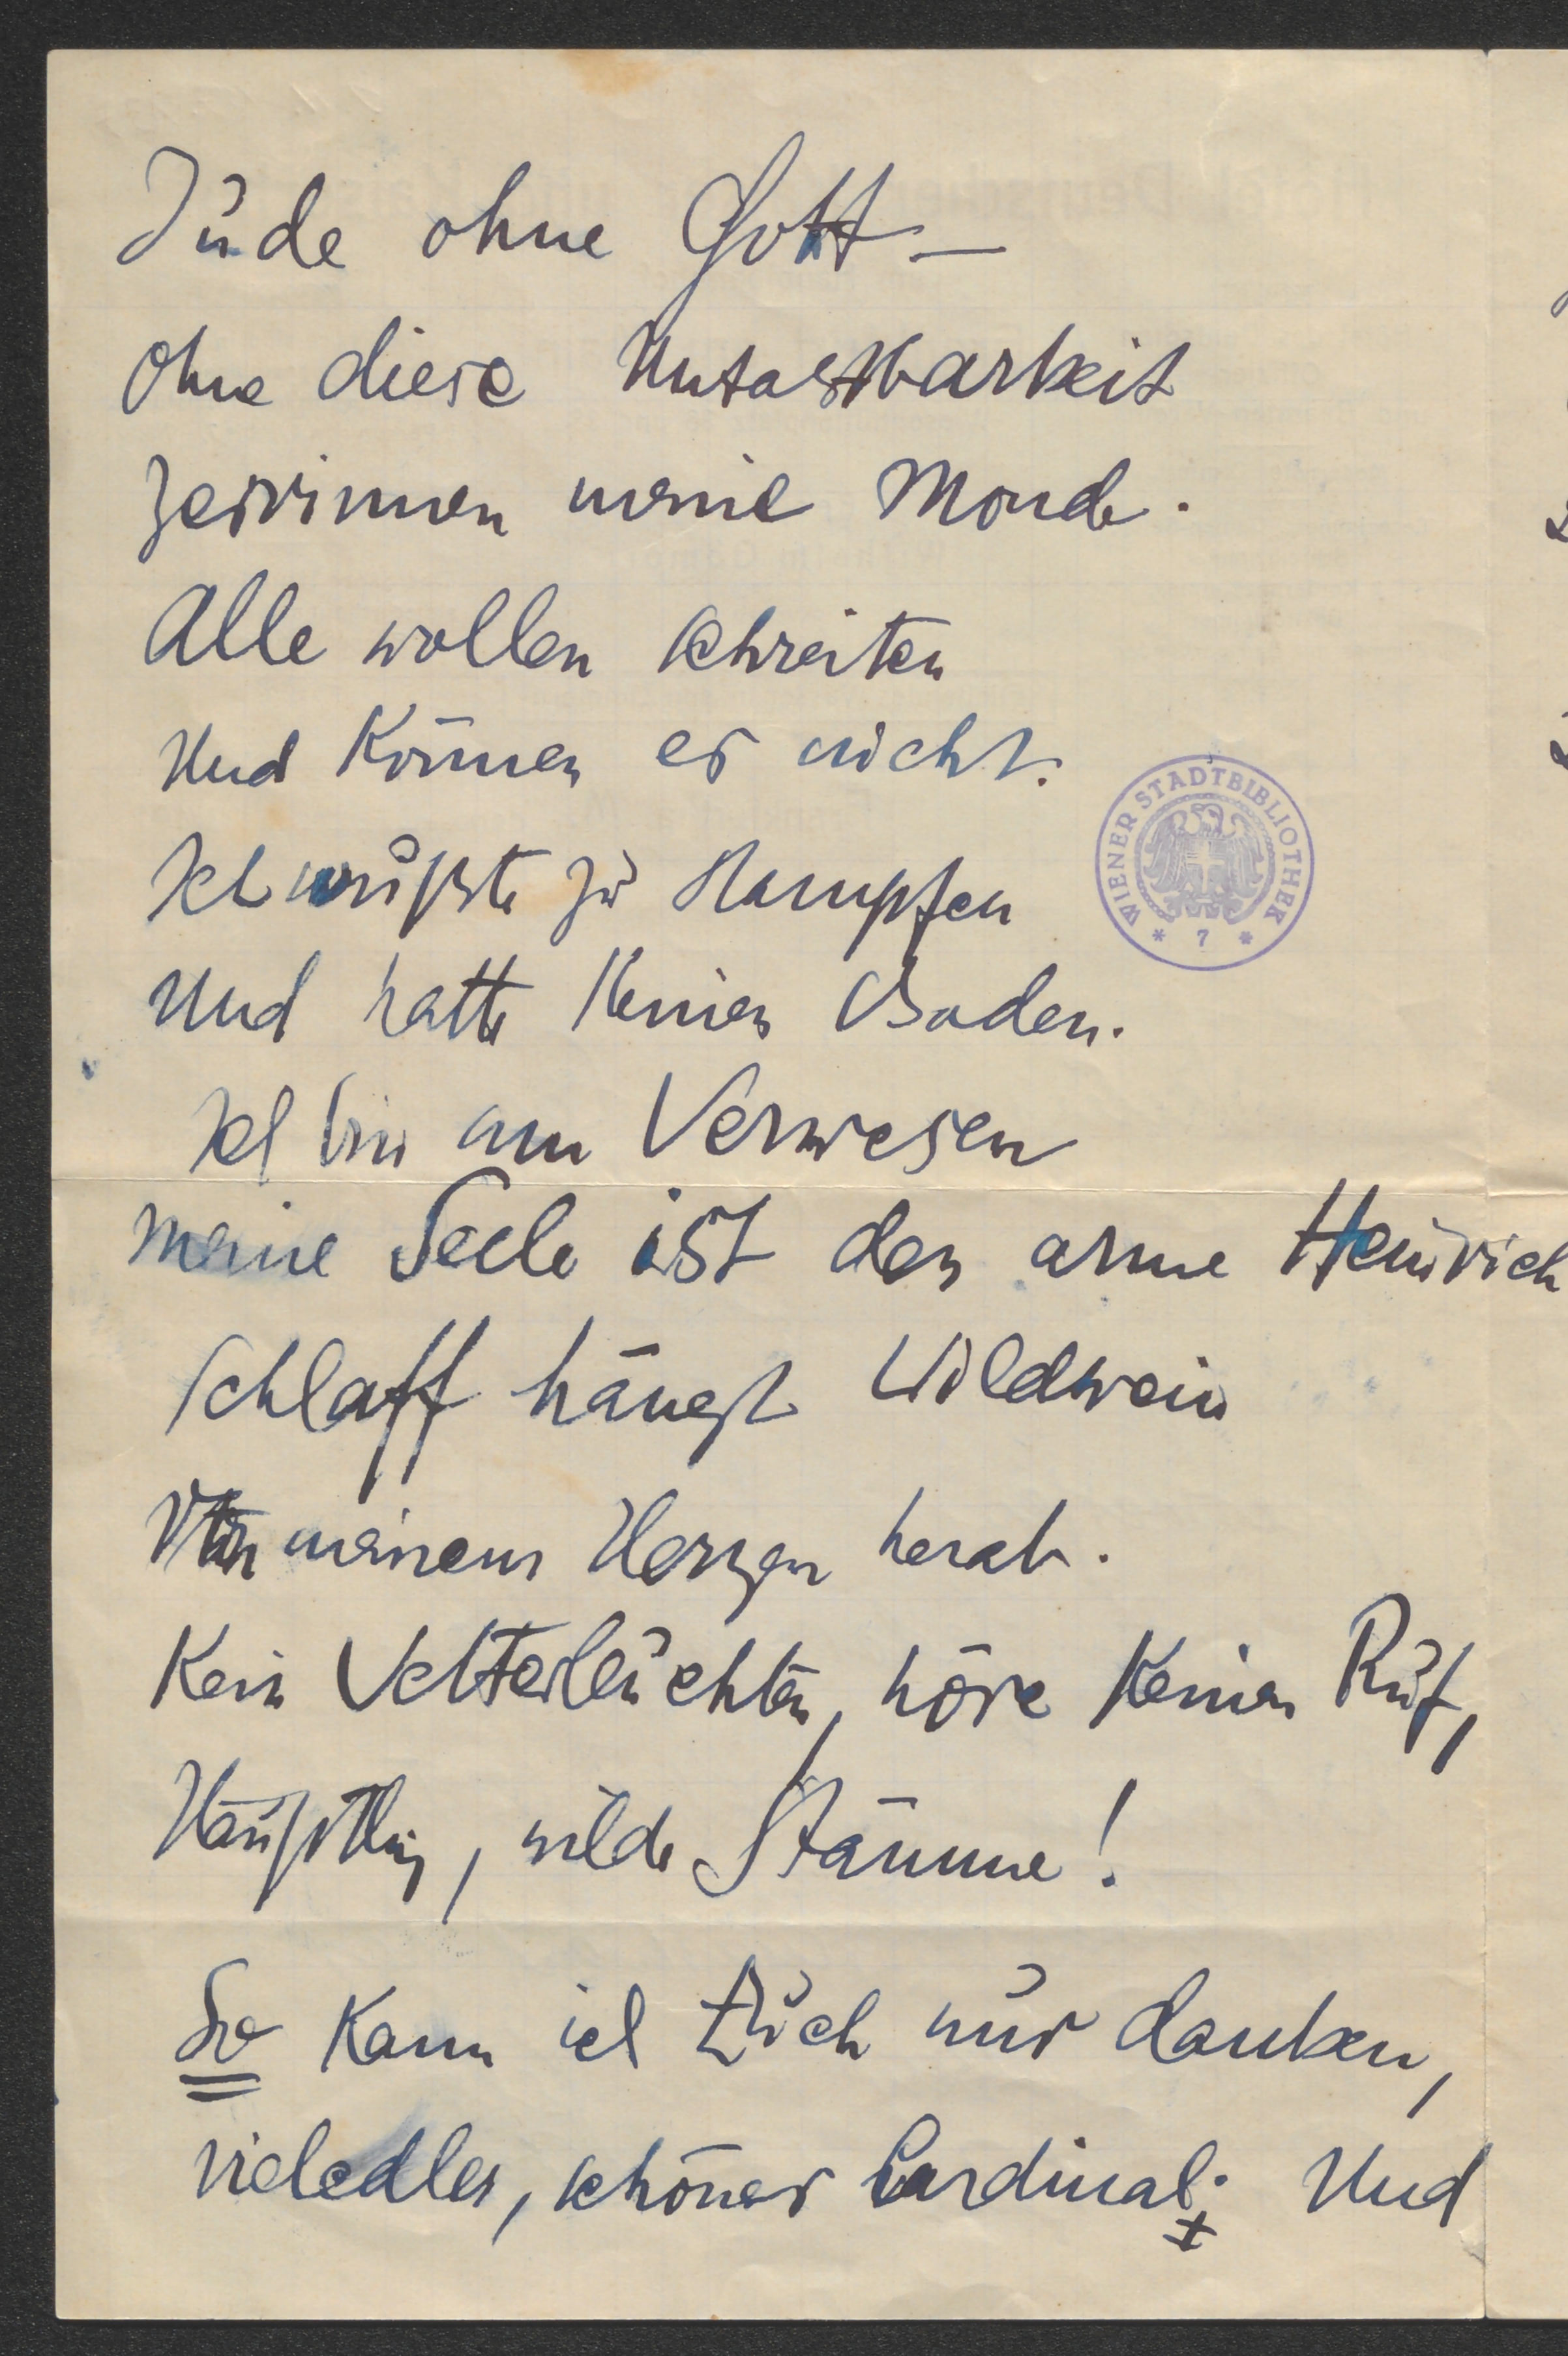 Jude ohne Gott –
Ohne diese Untastbarkeit
zerrinnen meine Monde.
Alle wollen schreiten
Und können es nicht.
Ich wüßte zu stampfen
Und hatte keinen Boden.
Ich bin am Verwesen
meine Seele ist der arme Heinrich
Schlaff hängt Wildwein
Von meinem Herzen herab.
Kein Wetterleuchten, höre keinen Ruf,
Häuptling, wilde Stämme!
So kann ich Euch nur danken,
vieledler, schöner Cardinal; Und
WIENER STADTBIBLIOTHEK
* 7 *